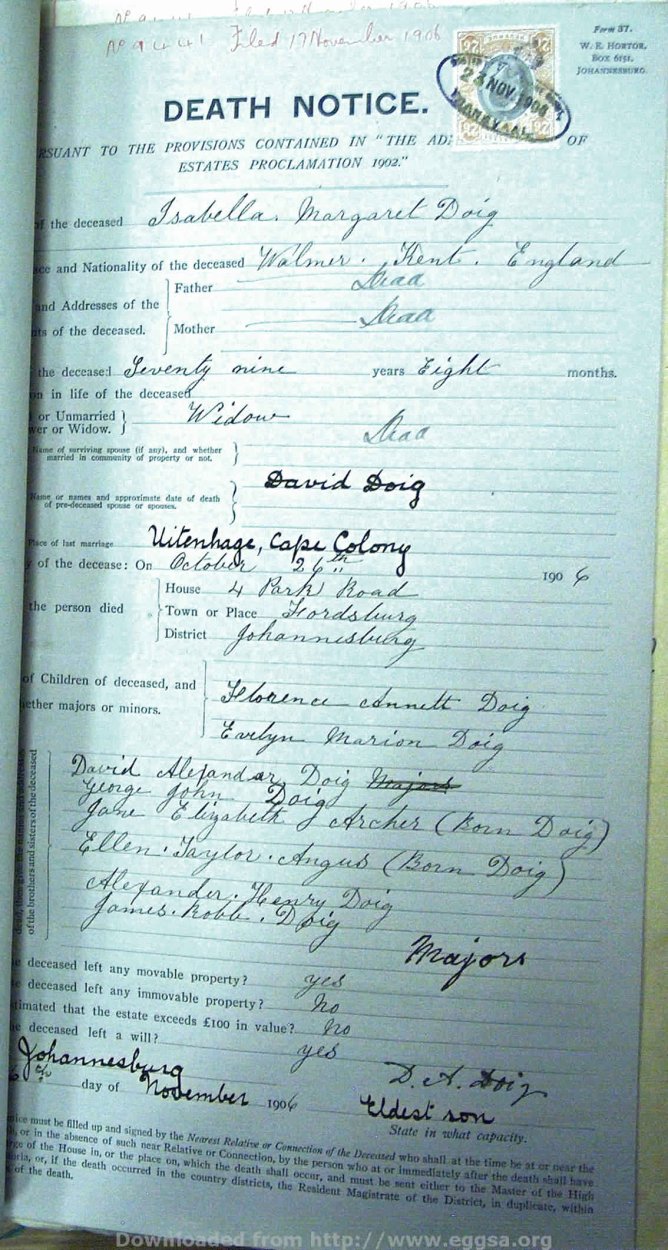 No 9441 Filed 17 November 1906
Form 37.
W. E. HORTOR,
BOX 6151,
JOHANNESBURG.
23 NOV 1906
TRANSVAAL
DEATH NOTICE.
RSUANT TO THE PROVISIONS CONTAINED IN "THE AD OF
ESTATES PROCLAMATION 1902."
of the deceased Isabella. Margaret Doig
ce and Nationality of the deceased Walmer. Kent. England
Father Dead
and Addresses of the
ts of the deceased.
Mother Dead
the deceased Seventy nine years Eight months.
on in life of the deceased
or Unmarried
wer or Widow. Widow
Name of surviving spouse (if any), and whether
married in community of property or not. Dead
Name or names and approximate date of death
of pre-deceased spouse or spouses. David Doig
Place of last marriage Uitenhage, Cape Colony
y of the decease: On October 26th 1906
House 4 Park Road
the person died Town or Place Fordsburg
District Johannesburg
of Children of deceased, and
ether majors or minors.
Florence Annett Doig
Evelyn Marion Doig
dead, then give the names and addresses
of the brothers and sisters of the deceased
David Alexandar Doig Majors
George John Doig
Jane Elizabeth Archer (Born Doig)
Ellen. Taylor. Angus (Born Doig)
Alexander. Henry Doig
James. Robb. Doig
Majors
e deceased left any movable property? yes
e deceased left any immovable property? No
timated that the estate exceeds £100 in value? No
e deceased left a will? yes
Johannesburg
6 day of November 1906
D. A. Doig
Eldest son
State in what capacity.
ice must be filled up and signed by the Nearest Relative or Connection of the Deceased who shall at the time be at or near the
h, or in the absence of such near Relative or Connection, by the person who at or immediately after the death shall have
rge of the House in, or the place on, which the death shall occur, and must be sent either to the Master of the High
oria, or, if the death occurred in the country districts, the Resident Magistrate of the District, in duplicate, within
s of the death.
Downloaded from http://www.eggsa.org